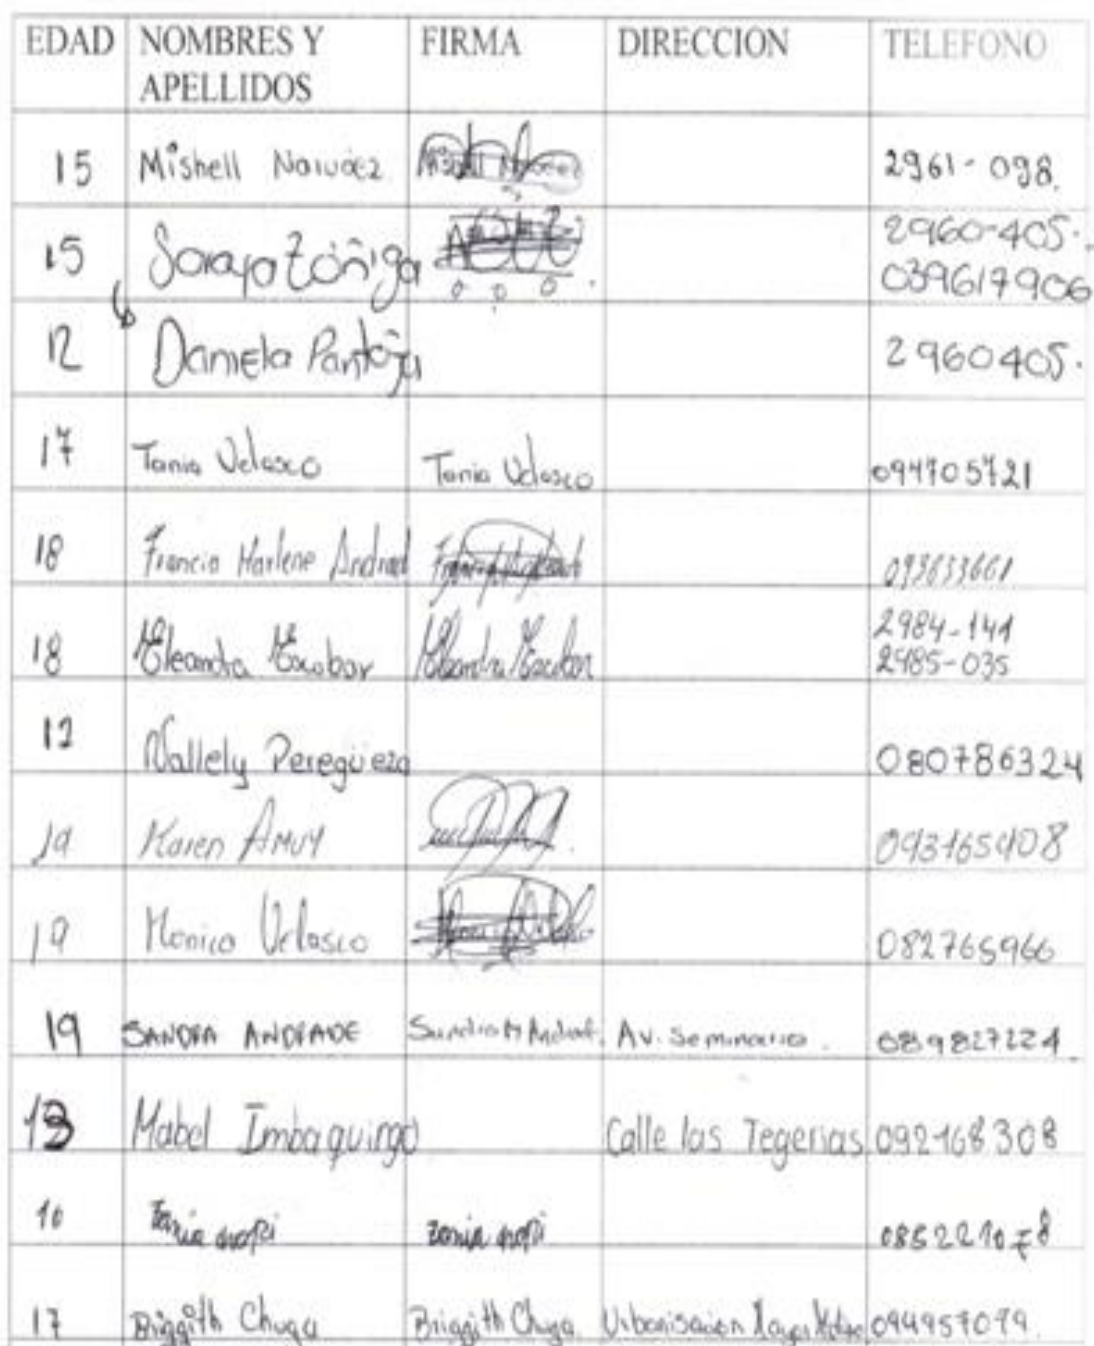 EDAD NOMBRES Y APELLIDOS FIRMA DIRECCION TELEFONO
15 Mishell Narváez 2961-098.
15 Soraya Zoñiga 2960-405.
039617906
12 Daniela Pantoja 2960405.
17 Tania Velasco Tania Velasco 094705721
18 Francia Marlene Andrad 093633661
18 Eleandra Escobar Eleandra Escobar 2984-141
2985-035
12 Nallely Peregüeza 080786324
19 Karen Amuy 093165908
19 Monica Velasco 082765966
19 SANDRA ANDRADE Sandra M Andrad. Av. Seminario. 089827224.
13 Mabel Imbaquingo Calle las Tegerias 092168308
16 085221078
17 Briggith Chuga Briggith Chuga Urbanisacion 094957079.